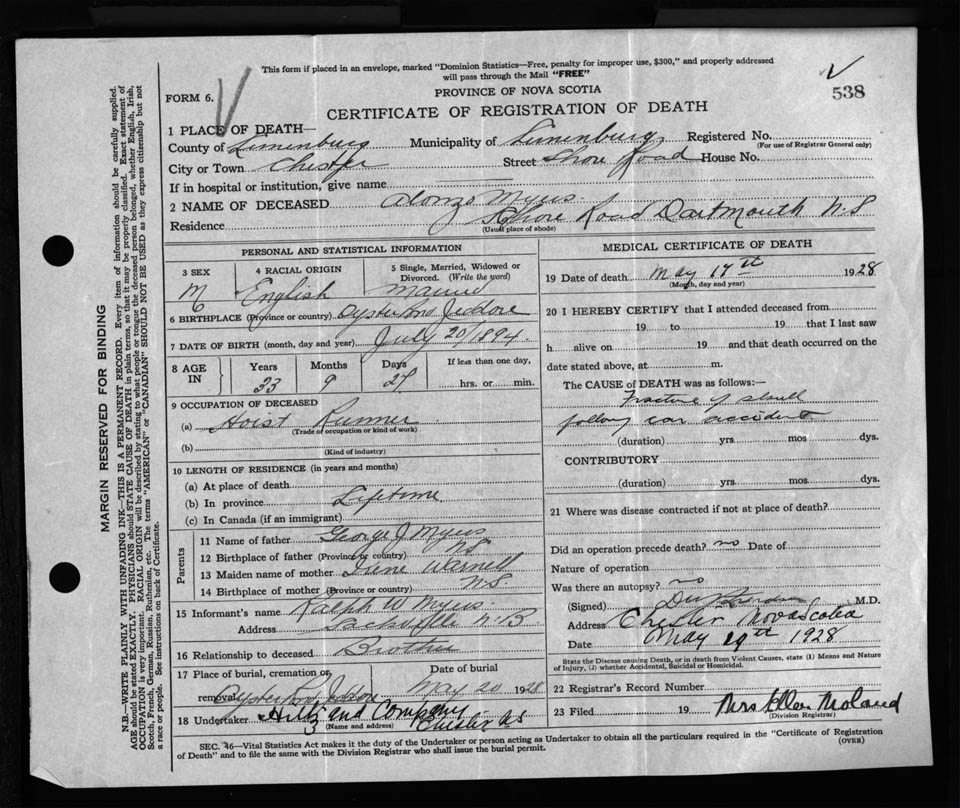 This form if placed in an envelope, marked "Dominion Statistics—Free, penalty for improper use, $300," and properly addressed
will pass through the Mail "FREE"
538
FORM 6.
PROVINCE OF NOVA SCOTIA
CERTIFICATE OF REGISTRATION OF DEATH
1 PLACE OF DEATH—
County of Lunenburg Municipality of Lunenburg Registered No.
(For use of Registrar General only)
City or Town Chester Street Shore Road House No.
If in hospital or institution, give name
2 NAME OF DECEASED Alonzo Myers
Residence Shore Road Dartmouth N.S
(Usual place of abode)
PERSONAL AND STATISTICAL INFORMATION
3 SEX 4 RACIAL ORIGIN 5 Single, Married, Widowed or Divorced. (Write the word)
M English Married
6 BIRTHPLACE (Province or country) Oyster Pond Jeddore
7 DATE OF BIRTH (month, day and year) July 20/1894
8 AGE IN Years Months Days If less than one day,
33 9 27 hrs. or min.
9 OCCUPATION OF DECEASED
(a) Hoist Runner
(Trade of occupation or kind of work)
(b)
(Kind of industry)
10 LENGTH OF RESIDENCE (in years and months)
(a) At place of death
(b) In province Lifetime
(c) In Canada (if an immigrant)
Parents
11 Name of father George J Myers
12 Birthplace of father (Province or country) NS
13 Maiden name of mother Irene Warnell
14 Birthplace of mother (Province or country) N-S
15 Informant's name Ralph W Myers
Address Sackville N.B
16 Relationship to deceased Brother
17 Place of burial, cremation, or removal Date of burial
Oyster Pond Jeddore May 20 1928
18 Undertaker Hiltz and Company
(Name and address) Chester NS
MEDICAL CERTIFICATE OF DEATH
19 Date of death May 17th 1928
(Month, day and year)
20 I HEREBY CERTIFY that I attended deceased from
19 to 19 that I last saw
h alive on 19 and that death occurred on the
date stated above, at m.
The CAUSE of DEATH was as follows:—
Fracture of skull
following car accident
(duration) yrs mos dys.
CONTRIBUTORY
(duration) yrs. mos. dys.
21 Where was disease contracted if not at place of death?
Did an operation precede death? no Date of
Nature of operation
Was there an autopsy? no
(Signed) M.D.
Address Chester Nova Scotia
Date May 19th 1928
State the Disease causing Death, or in death from Violent Causes, state (1) Means and Nature
of Injury, (2) whether Accidental, Suicidal or Homicidal.
22 Registrar's Record Number
23 Filed 19 Mrs Ellen Moland
(Division Registrar)
SEC. 46—Vital Statistics Act makes it the duty of the Undertaker or person acting as Undertaker to obtain all the particulars required in the "Certificate of Registration
of Death" and to file the same with the Division Registrar who shall issue the burial permit.
(OVER)
MARGIN RESERVED FOR BINDING
N.B.—WRITE PLAINLY WITH UNFADING INK—THIS IS A PERMANENT RECORD. Every item of information should be carefully supplied.
AGE should be stated EXACTLY. PHYSICIANS should STATE CAUSE OF DEATH in plain terms, so that it may be properly classified. Exact statement of
OCCUPATION is very important. RACIAL ORIGIN will be described by stating to what people or tongue the deceased person belonged, whether English, Irish,
Scotch, French, German, Russian, Ruthenian, etc. The terms "AMERICAN" or "CANADIAN" SHOULD NOT BE USED as they express citizenship but not
a race or people. See instructions on back of Certificate.